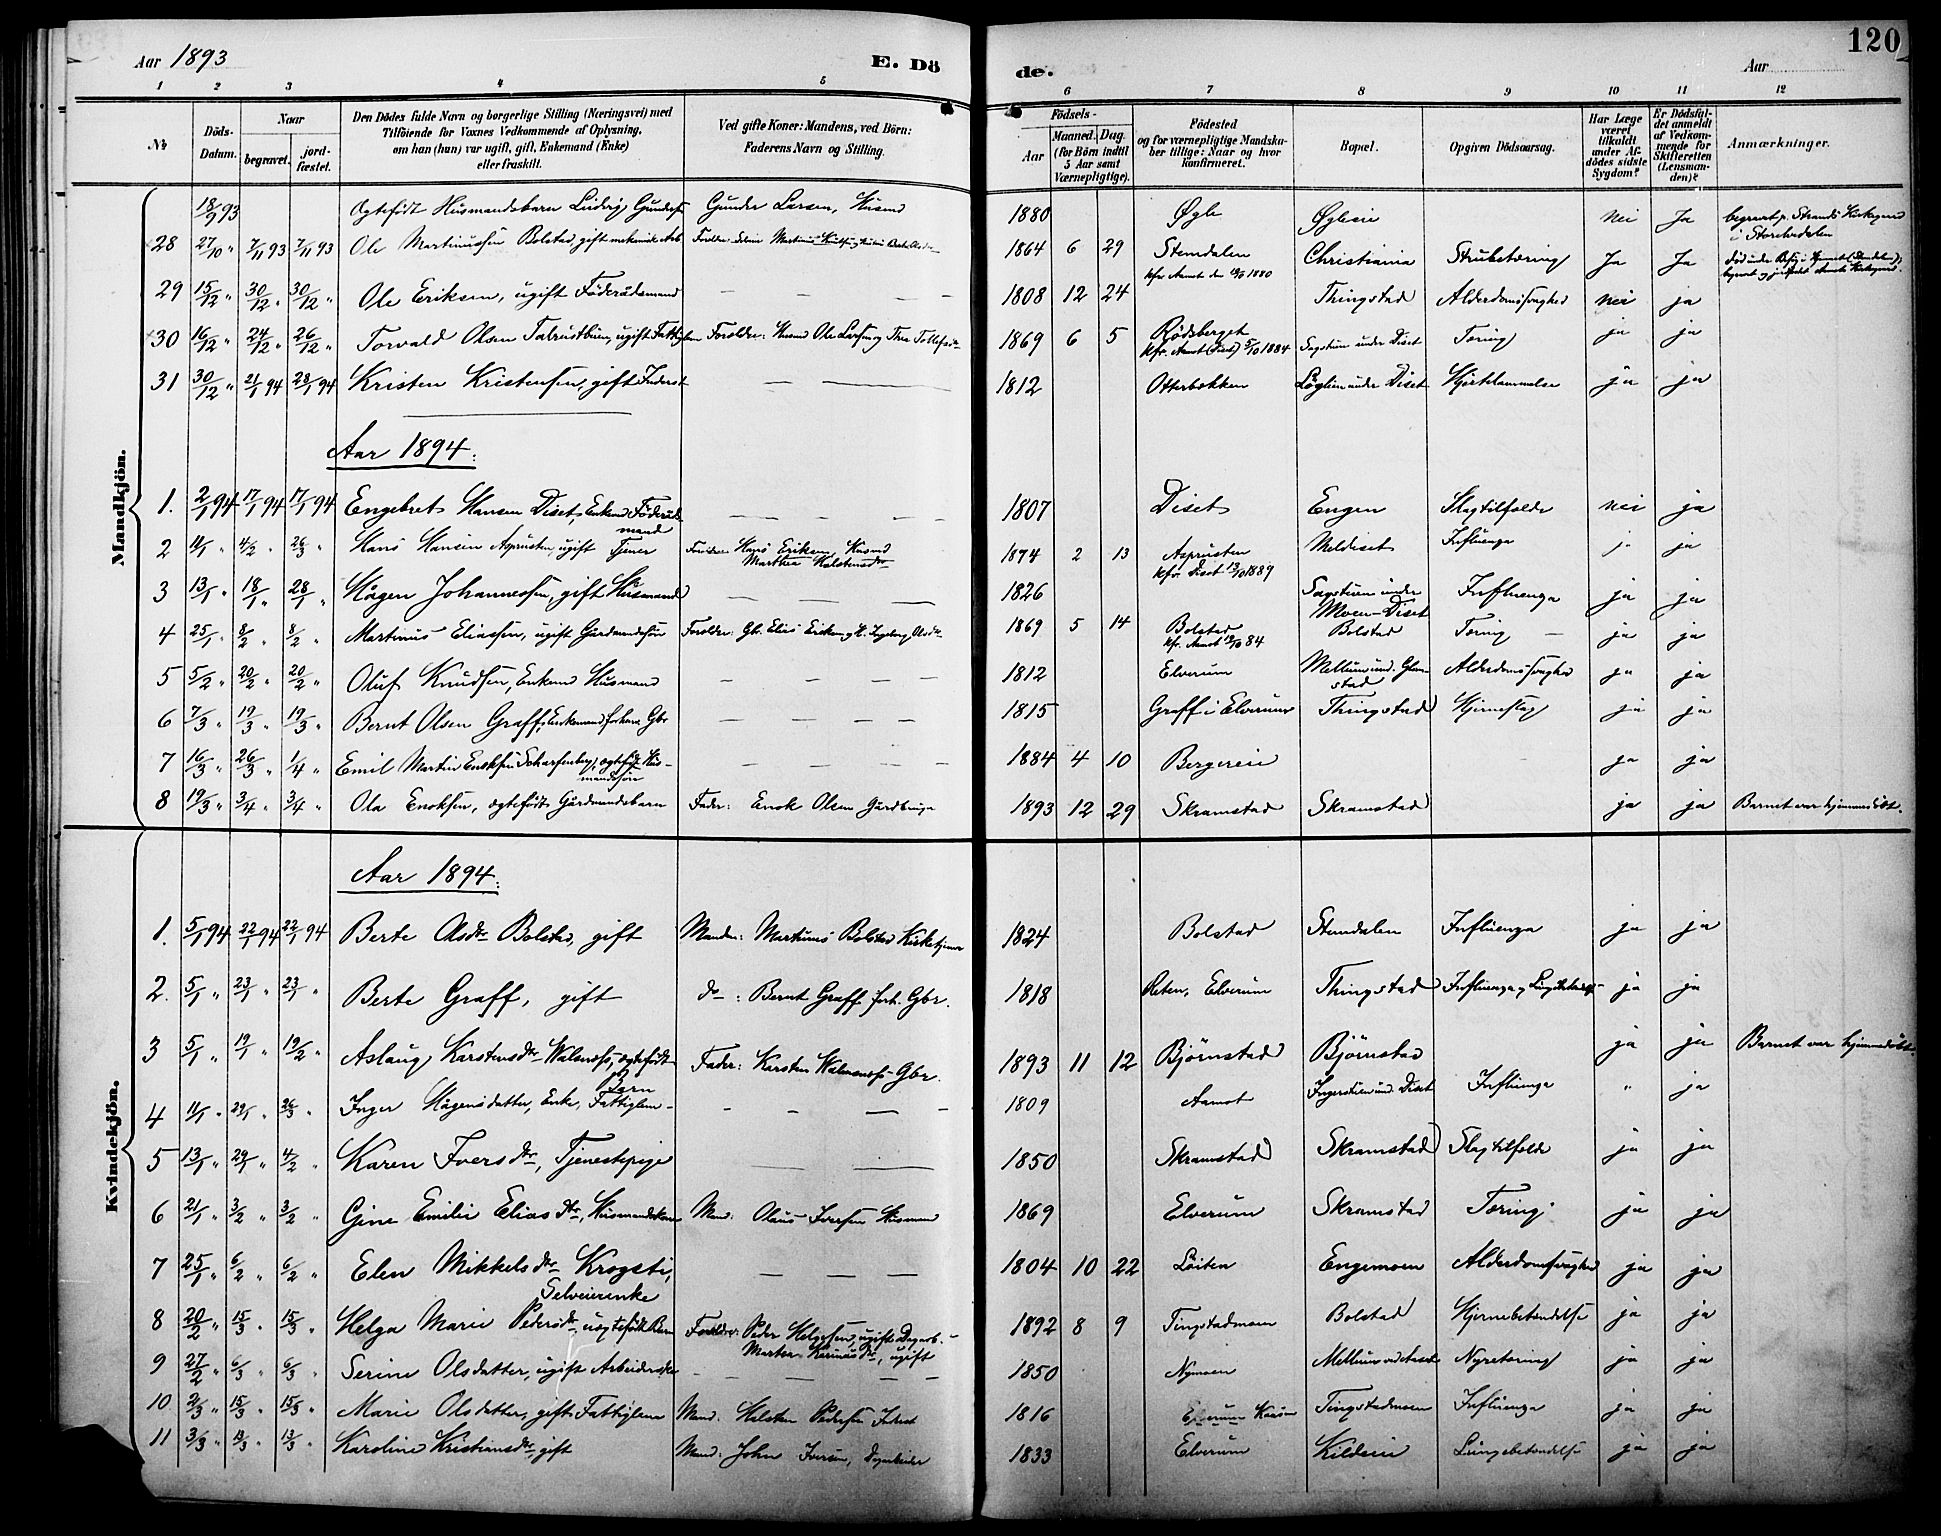 Aar 1893
E. Dö
de.
Aar
120
1 2 3 4 5 6 7 8 9 10 11 12
No
Döds-Datum.
Naar
begravet.
jordfæstet.
Den Dødes fulde Navn og borgerlige Stilling (Næringsvei) med
Tilföiende for Voxnes Vedkommende af Oplysning,
om han (hun) var ugift, gift, Enkemand (Enke)
eller fraskilt.
Ved gifte Koner: Mandens, ved Börn:
Faderens Navn og Stilling.
Födsels-
Aar
Maaned. Dag.
(for Börn indtil
5 Aar samt
Værnepligtige).
Födested
og for værnepligtige Mandskaber tillige: Naar og hvor
konfirmeret.
Bopæl.
Opgiven Dödsaarsag.
Har Læge
været
tilkaldt
under Afdödes sidste
Sygdom?
Er Dödsfaldet anmeldt
af Vedkommende for
Skifteretten
(Lensmanden)?
Anmærkninger.
Mandkjön.
18/9 93 Ogtefödt Husmandsbarn Gunder Larsen, Husmd 1880 Øgle Øgleie nei Ja begravet p. Strands Kirkegaard
28 27/10 " 7/11 93 7/11 93 Ole Martinussen Bolstad, gift 1864 6 29 Stemdalen Christiania Strubetæring Ja Ja
29 15/12 " 30/12 " 30/12 " Ole Eriksen, ugift Föderaadsmand — — — 1808 12 24 Thingstad Alderdomssvaghed nei ja
30 16/12 " 24/12 " 26/12 " Torvald Olsen ugift Forældre: Husmd Ole Larsen og 1869 6 5 Rødsberget kfr. Aamot (Diset) 5/10 1884 Sagstuen under Diset Tæring ja ja
31 30/12 " 21/1 94 28/1 94 Kristen Kristensen, gift Inderst — — 1812 Otterbækken under Diset Hjertelammelse ja ja
Aar 1894.
1. 2/1 94 17/1 94 17/1 94 Engebret Hansen Diset, Enkemd Föderaadsmand — — — 1807 Diset Engen Slagtilfælde nei ja
2 11/1 " 4/2 " 26/3 " Hans Hansen Asprusten, ugift Tjener Forældre: Hans Eriksen, Husmd Marthea Halstensdtr 1874 2 13 Asprusten kfr. Diset 13/10 1889 Meldiset Influenza ja ja
3 13/1 " 18/1 " 28/1 " Hågen Johannessen, gift Husmand — — — 1826 Sagstuen under Moen-Diset Influenza ja ja
4 25/1 " 8/2 " 8/2 " Martinus Eliassen, ugift Gårdmandssön Forældre: Gbr. Elias Eriksen og H. Ingeborg Olsdtr 1869 5 14 Bolstad kfr. Aamot 12/10 84 Bolstad Tæring — ja ja
5 5/2 " 20/2 " 20/2 " Oluf Knudsen, Enkemd Husmand — — — 1812 Elverum Mellum und. Glomstad Alderdomssvaghed ja ja
6 7/3 " 19/3 " 19/3 " Bernt Olsen Graff, Enkemand, forhenv Gbr — — — 1815 Graff i Elverum Thingstad Hjerneslag ja ja
7 16/3 " 26/3 " 1/4 " Emil Martin Enoksen Scharfenberg, ægtefødt Husmandssön — — — 1884 4 10 Bergereie ja ja
8 19/3 " 3/4 " 3/4 " Ola Enoksen, ægtefødt Gårdmandsbarn Fader: Enok Olsen Gårdbruger 1893 12 29 Skramstad Skramstad ja ja Barnet var hjemmedöbt.
Kvindekjön.
Aar 1894.
1. 5/1 94 22/1 94 22/1 94 Berte Olsdtr Bolstad, gift Manden: Martinus Bolstad Kirketjener 1824 Bolstad Stemdalen Influenza ja ja
2. 5/1 " 23/1 " 23/1 " Berte Graff, gift do: Bernt Graff forh. Gbr. 1818 Elverum Thingstad Influenza og ja ja
3 5/1 " 19/1 " 19/2 " Aslaug Karstensdtr Walmsnes, ægtefødt Barn Fader: Karsten Walmsnes Gbr. 1893 11 12 Bjørnstad Bjørnstad ja ja Barnet var hjemmedöbt.
4 11/1 " 29/1 " 26/3 " Inger Hågensdatter, Enke, Fattiglem — — — — 1809 Aamot Ingerstuen und. Diset Influenza " ja
5 13/1 " 29/1 " 4/2 " Karen Iversdtr, Tjenestepige — — 1850 Skramstad Skramstad Slagtilfælde ja ja
6 21/1 " 3/2 " 3/2 " Gine Emilie Eliasdtr, Husmandskone Mand: Olaus Iversen Husmand 1869 Elverum Skramstad Tæring ja ja
7 25/1 " 6/2 " 6/2 " Elen Mikkelsdtr Krogsti, Selveierenke — — — 1804 10 22 Löiten Engemoen Alderdomssvaghed ja ja
8 20/2 " 15/3 " 15/3 " Helga Marie Pedersdtr, uægtefødt Barn Forældre: Peder Helgesen, ugift Dagarb. Martea Karinusdtr, ugift 1892 8 9 Tingstadmoen Bolstad Hjernebetændelse ja ja
9 27/2 " 6/3 " 6/3 " Serine Olsdatter, ugift Arbeiderske — — — — — 1850 Nymoen Mellum ved Aaset Nyretæring ja ja
10 2/3 " 15/3 " 15/3 " Marie Olsdatter, gift Fattiglem Mand: Halsten Pedersen Inderst 1816 Elverum Tingstadmoen Influenza ja ja
11 3/3 " 13/3 " 13/3 " Karoline Kristiansdtr gift Mand: John Iversen, Dagarbeider 1833 Elverum Kildeeie Lungebetændelse ja ja